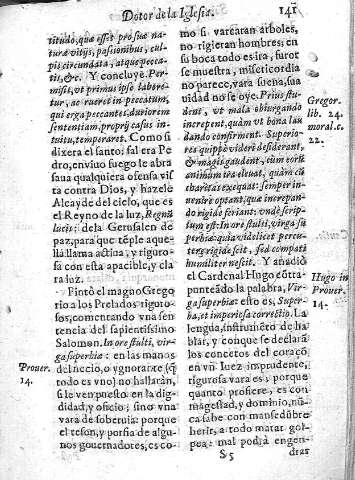 Dotor de la Iglesia. 141
titudo, quæ esset pro suæ na-
turæ vitijs, passionibus, cul-
pis circundata, atque pecca-
tis, &c. Y concluye. Per-
misit, vt primus ipse labere-
tur, ac rueret in peccatum,
qui erga peccantes, duriorem
sententiam, proprij casus in-
tuitu, temperaret. Como si
dixera el santo: sal era Pe
dro, en viuo fuego le abra
saua qualquiera ofensa vis
ta contra Dios, y hazele
Alcayde del cielo, que es
el Reyno de la luz, Regnũ
lucis: de la Gerusalen de
paz, para que tẽple aque-
lla llama actiua, y riguro-
sa con esta apacible, y cla
ra luz.
Pintò el magno Grego
rio a los Prelados riguro-
sos, comentando vna sen
tencia del sapientissimo
Salomon. In ore stulti, vir-
ga superbiæ: en las manos
del necio, o ygnorante (q̃
todo es vno) no hallaràn,
si le ven puesto en la dig-
didad, y oficio; sino vna
vara de soberuia: porque
el teson, y porfia de algu-
nos gouernadores, es co-
Prouer.
14.
mo si varearan arboles,
no rigieran hombres, en
su boca todo es ira, furor
se muestra, misericordia
no parece, vara suena, sua
uidad no se oye. Prius stu-
dent, vt mala obiurgando
increpent, quàm vt bona lau
dando confirment. Superio-
res quippè videri desiderant,
& magis gaudent, cum eorũ
animum ira eleuat, quàm cũ
charitas exæquat: semper in-
uenire optant, quæ increpan-
do rigidè feriant: vndè scrip-
tum est: In ore stulti, virga su
perbiæ: quia videlicet percu-
tere rigidè scit, sed compati
humiliter nescit. Y añadiò
el Cardenal Hugo cõtra-
punteãdo la palabra, Virga
superbiæ: esto es, Super-
ba, et imperiosa correctio. La
lengua, instrumẽto de ha-
blar, y con que se declarã
los concetos del coraçõ
en vn Iuez imprudente,
rigurosa vara es; porque
quanto profiere, es con
magestad, y dominio, nũ-
ca sabe con mansedũbre
herir, a todo matar gol-
pea: mal podrà engen-
Gregor.
lib. 24.
moral. c.
22.
Hugo in
Prouer.
14.
S 5 drar